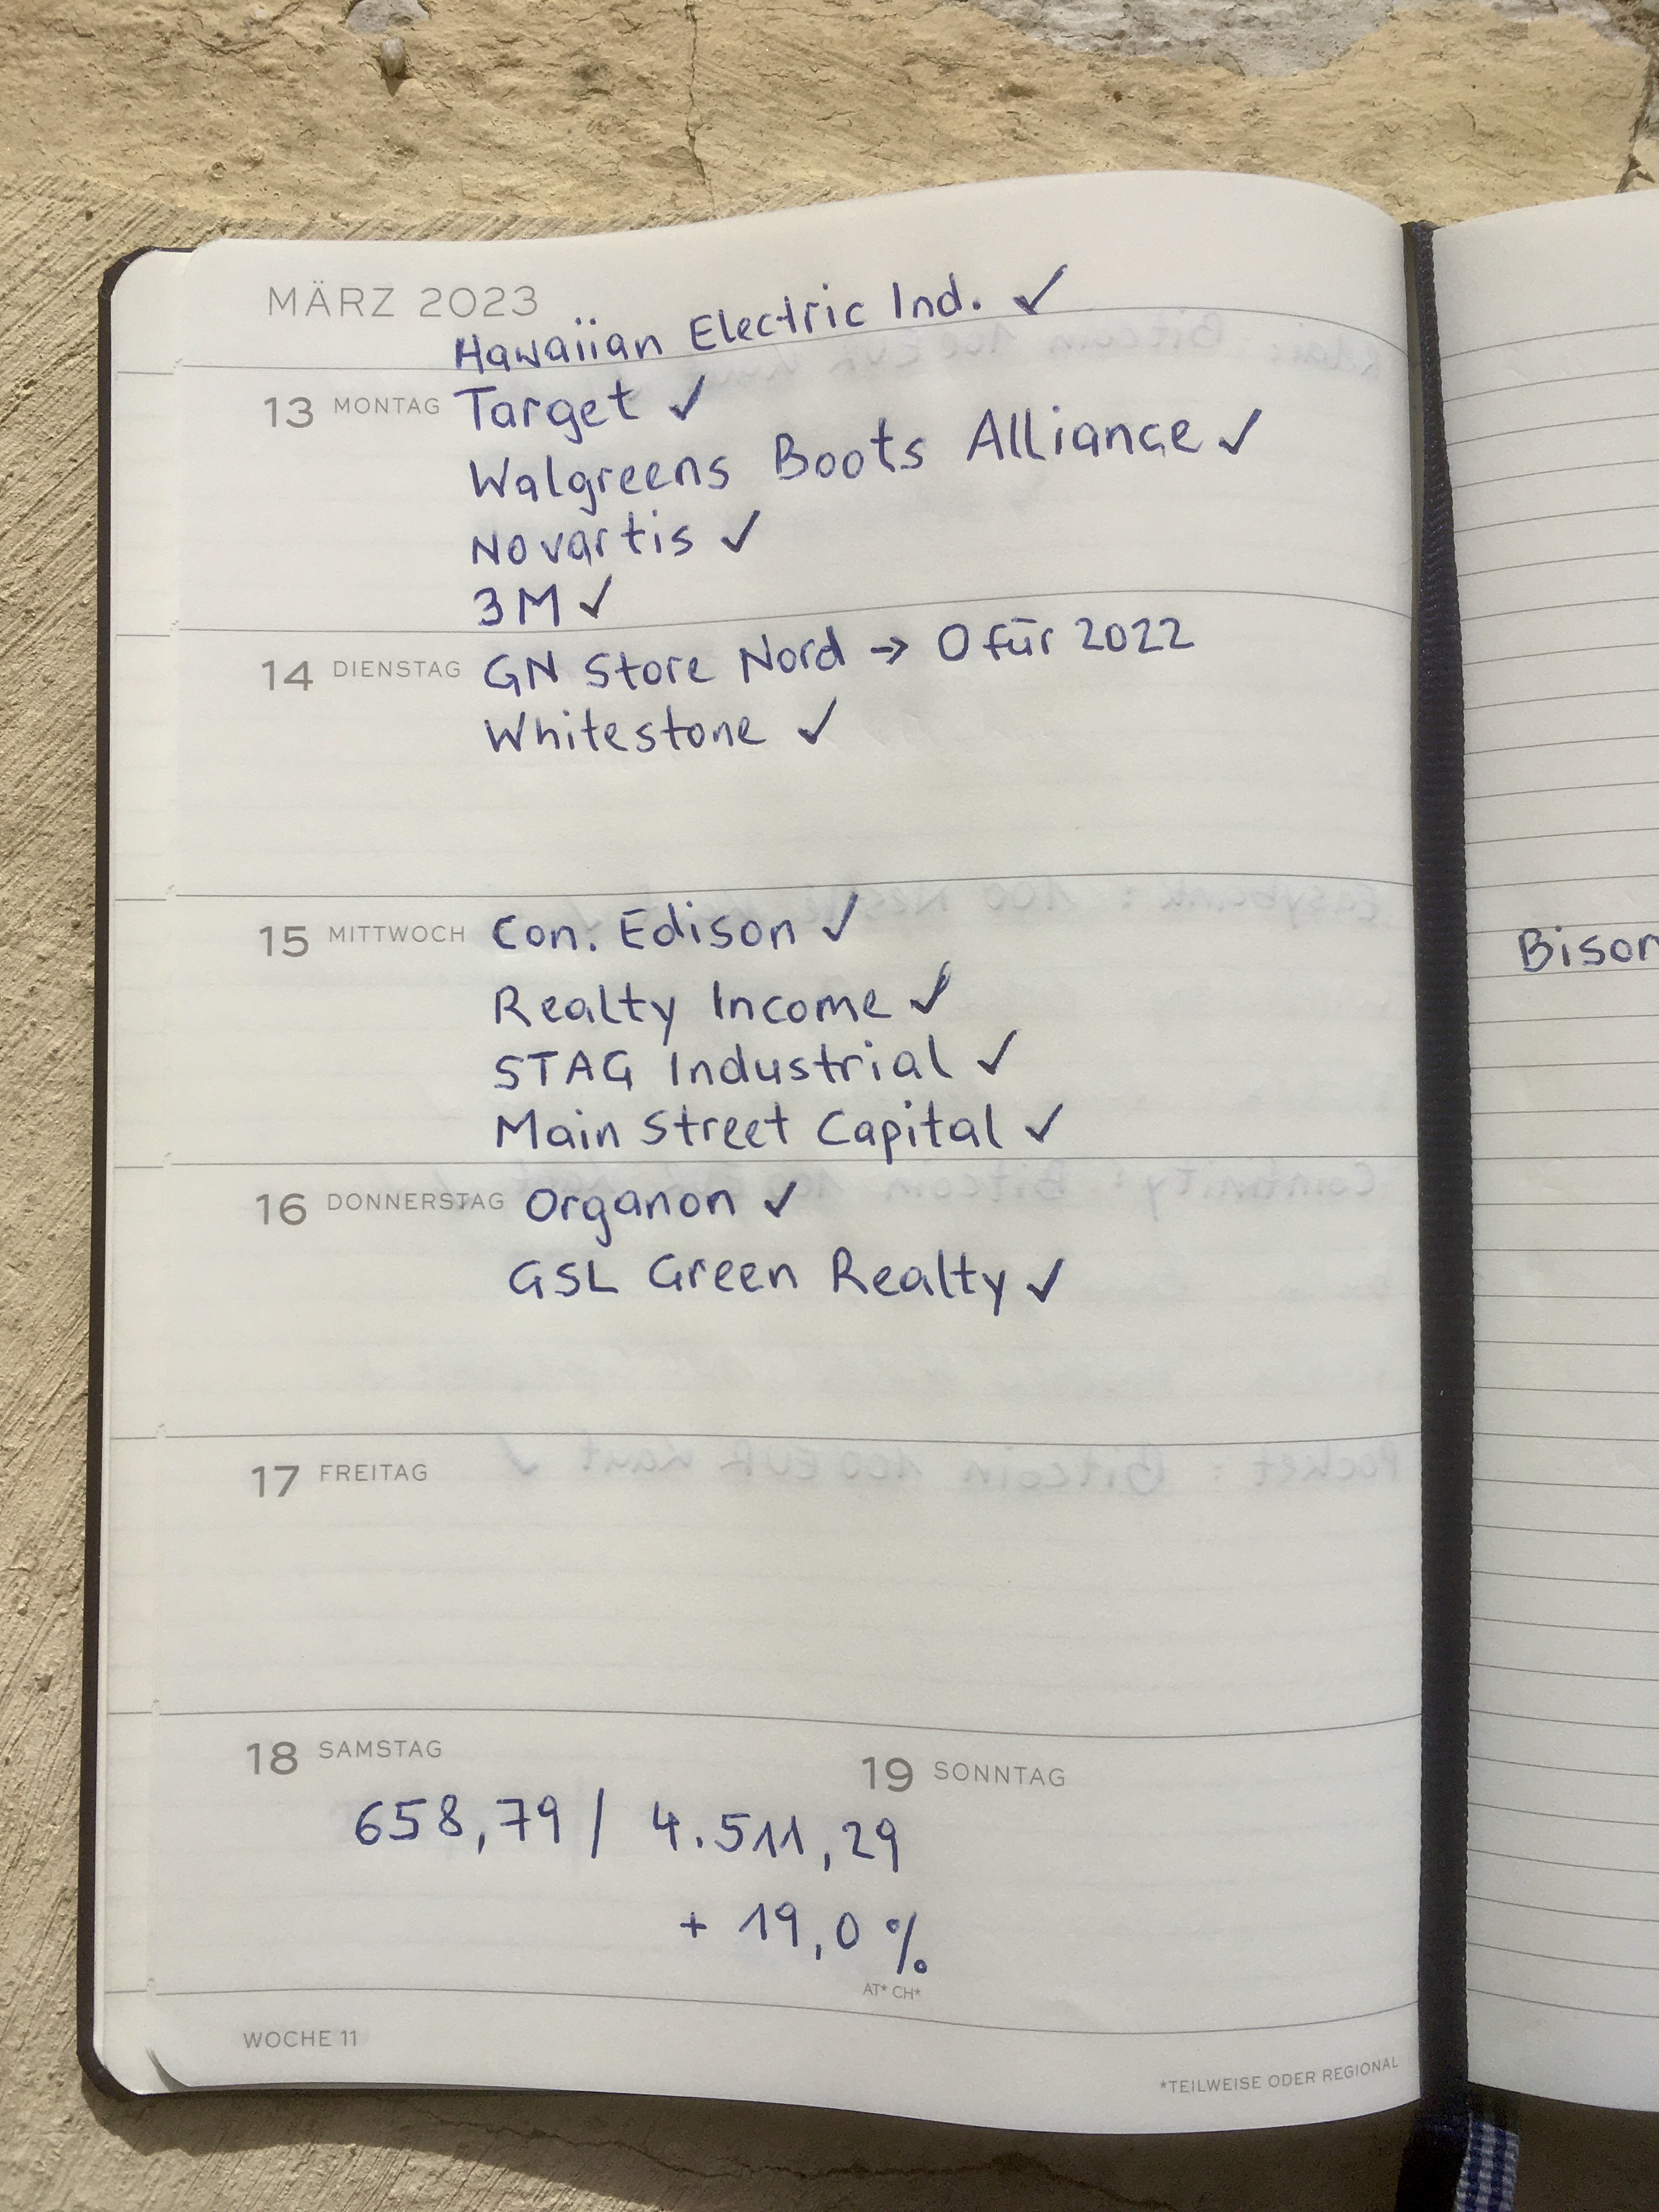 MÄRZ 2023
Hawaiian Electric Ind. ✓
13 MONTAG Target ✓
Walgreens Boots Alliance ✓
Novartis ✓
3M ✓
14 DIENSTAG GN Store Nord → 0 für 2022
Whitestone ✓
15 MITTWOCH Con. Edison ✓
Realty Income ✓
STAG Industrial ✓
Main Street Capital ✓
16 DONNERSTAG Organon ✓
GSL Green Realty ✓
17 FREITAG
18 SAMSTAG 19 SONNTAG
658,79 / 4.511,29
+ 19,0 %
AT* CH*
WOCHE 11
*TEILWEISE ODER REGIONAL